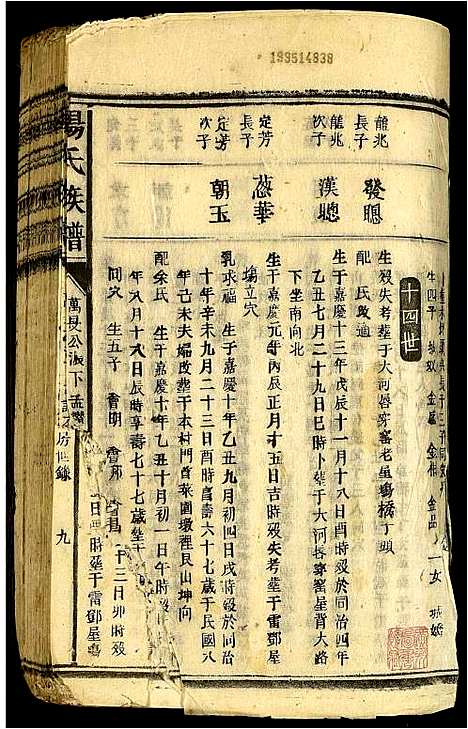 199514838
生四子 金相 金品 一女
十四世
龍兆
長子
發聰
生歿失考塟于大河唇穿窰老屋塢橋丁頭
配氏改適
龍兆
次子
漢聰
生于嘉慶十三年戊辰十一月十八日酉時殁於同治四年
乙丑七月二十二日巳時卜塟于大河唇穿窰屋背大路
下坐南向北
定芳
長子
蔥華
生于嘉慶元年丙辰正月十五日吉時殁失考塟于雷鄧屋
塢立穴
定芳
次子
朝玉
乳求福 生于嘉慶十年乙丑九月初四日戌時殁於同治
十年辛未九月二十三日酉時壽六十七歲于民國八
年己未夫婦改塟于本村門首菜園墩裡艮山坤向
配余氏 生于嘉慶十年乙丑十月初一日午時殁
年八月十八日辰時享壽七十七歲塟
同穴 生五子 會明 會邦 會昌
十三日卯時殁
日酉時塟于雷鄧屋塢
楊氏族譜
萬長公派下
房世錄
九